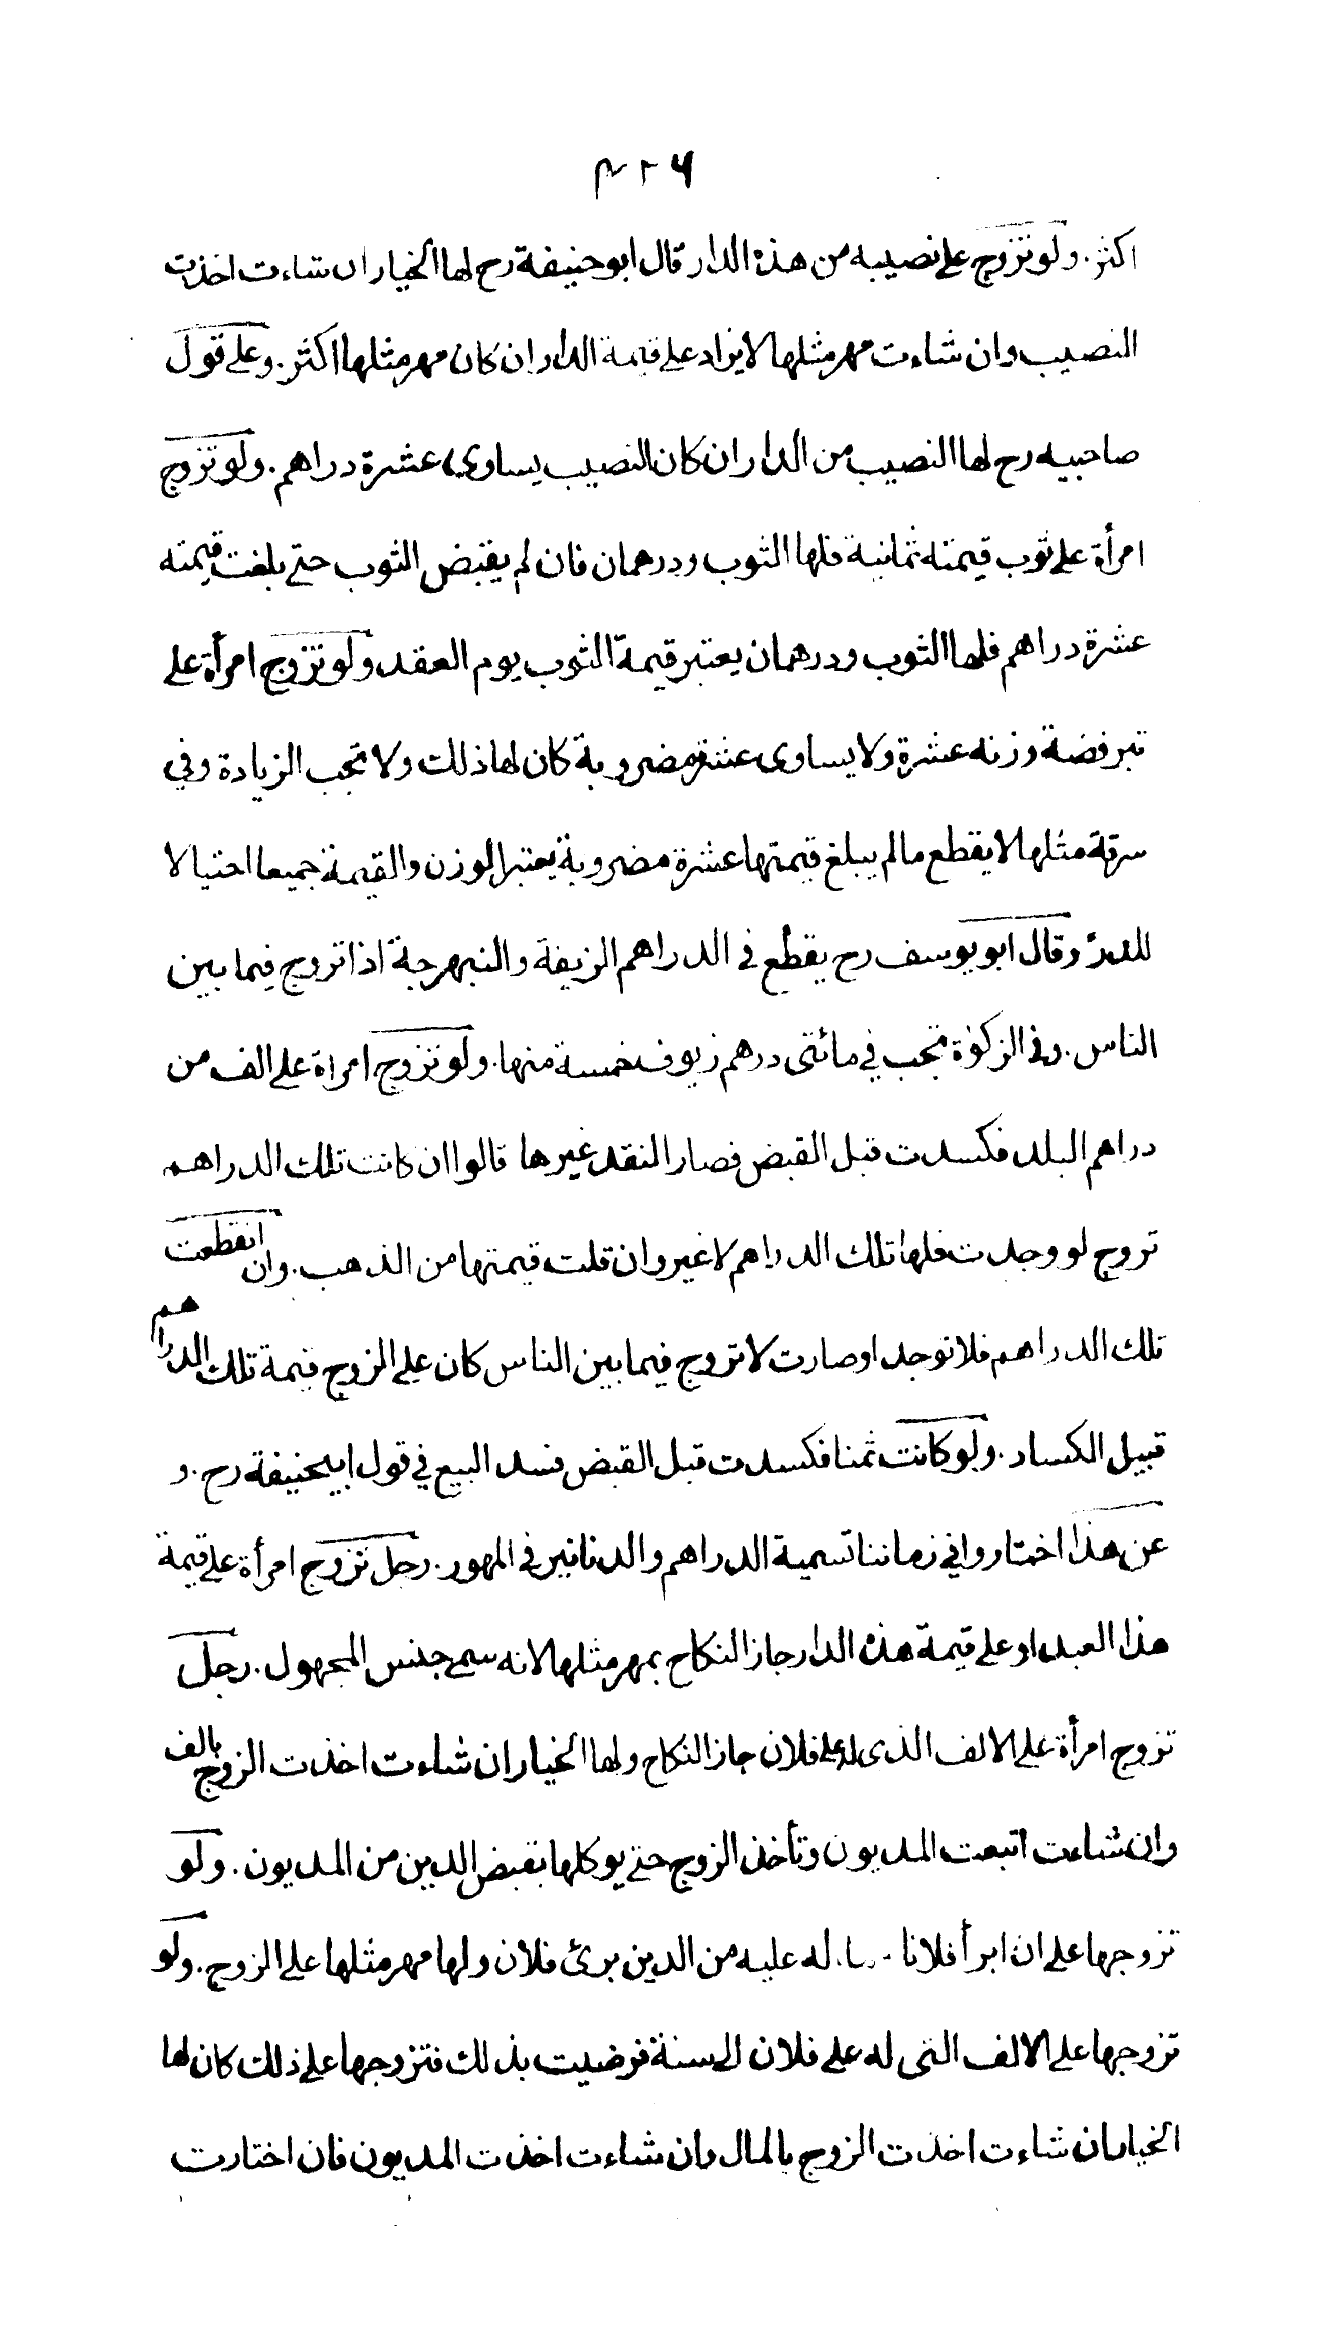 ۴۲۶
اكثر . ولو تزوج على نصيبه من هذه الدار قال ابو حنيفة رح لها الخيار ان شاءت اخذت
النصيب وان شاءت مهر مثلها لا يزاد على قيمة الدار ان كان مهر مثلها اكثر . وعلى قول
صاحبيه رح لها النصيب من الدار ان كان النصيب يساوى عشرة دراهم . ولو تزوج
امرأة على ثوب قيمته ثمانية فلها الثوب ودرهمان فان لم يقبض الثوب حتى بلغت قيمته
عشرة دراهم فلها الثوب ودرهمان يعتبر قيمة الثوب يوم العقد ولو تزوج امرأة على
تبر فضة وزنه عشرة ولا يساوى عشرة مضروبة كان لها ذلك ولا تجب الزيادة وفي
سرقة مثلها لا يقطع مالم يبلغ قيمتها عشرة مضروبة يعتبر الوزن والقيمة جميعا احتيالا
للدرء وقال ابو يوسف رح يقطع في الدراهم الزيفة والنبهرجة اذا تروج فيما بين
الناس . وفى الزكوة تجب في مائتى درهم زيوف خمسة منها . ولو تزوج امراة على الف من
دراهم البلد فكسدت قبل القبض فصار النقد غيرها قالوا ان كانت تلك الدراهم
تروج لو وجدت فلها تلك الدراهم لا غير وان قلت قيمتها من الذهب . وان انقطعت
تلك الدراهم فلا توجد او صارت لا تروج فيما بين الناس كان على الزوج قيمة تلك الدراهم
قبيل الكساد . ولو كانت ثمنا فكسدت قبل القبض فسد البيع في قول ابيحنيفة رح . و
عن هذا اختاروا في زماننا تسمية الدراهم والدنانير فى المهور . رجل تزوج امرأة على قيمة
هذا العبد او على قيمة هذه الدار جاز النكاح بمهر مثلها لانه سمى جنس المجهول . رجل
تزوج امرأة على الالف الذى له على فلان جاز النكاح ولها الخيار ان شاءت اخذت الزوج بالف
وان شاءت اتبعت المديون وتأخذ الزوج حتى يوكلها بقبض الدين من المديون . ولو
تزوجها على ان ابرأ فلانا له عليه من الدين برئ فلان ولها مهر مثلها على الزوج . ولو
تزوجها على الالف التى له على فلان الى سنة فرضيت بذلك فتزوجها على ذلك كان لها
الخيار ان شاءت اخذت الزوج بالمال وان شاءت اخذت المديون فان اختارت